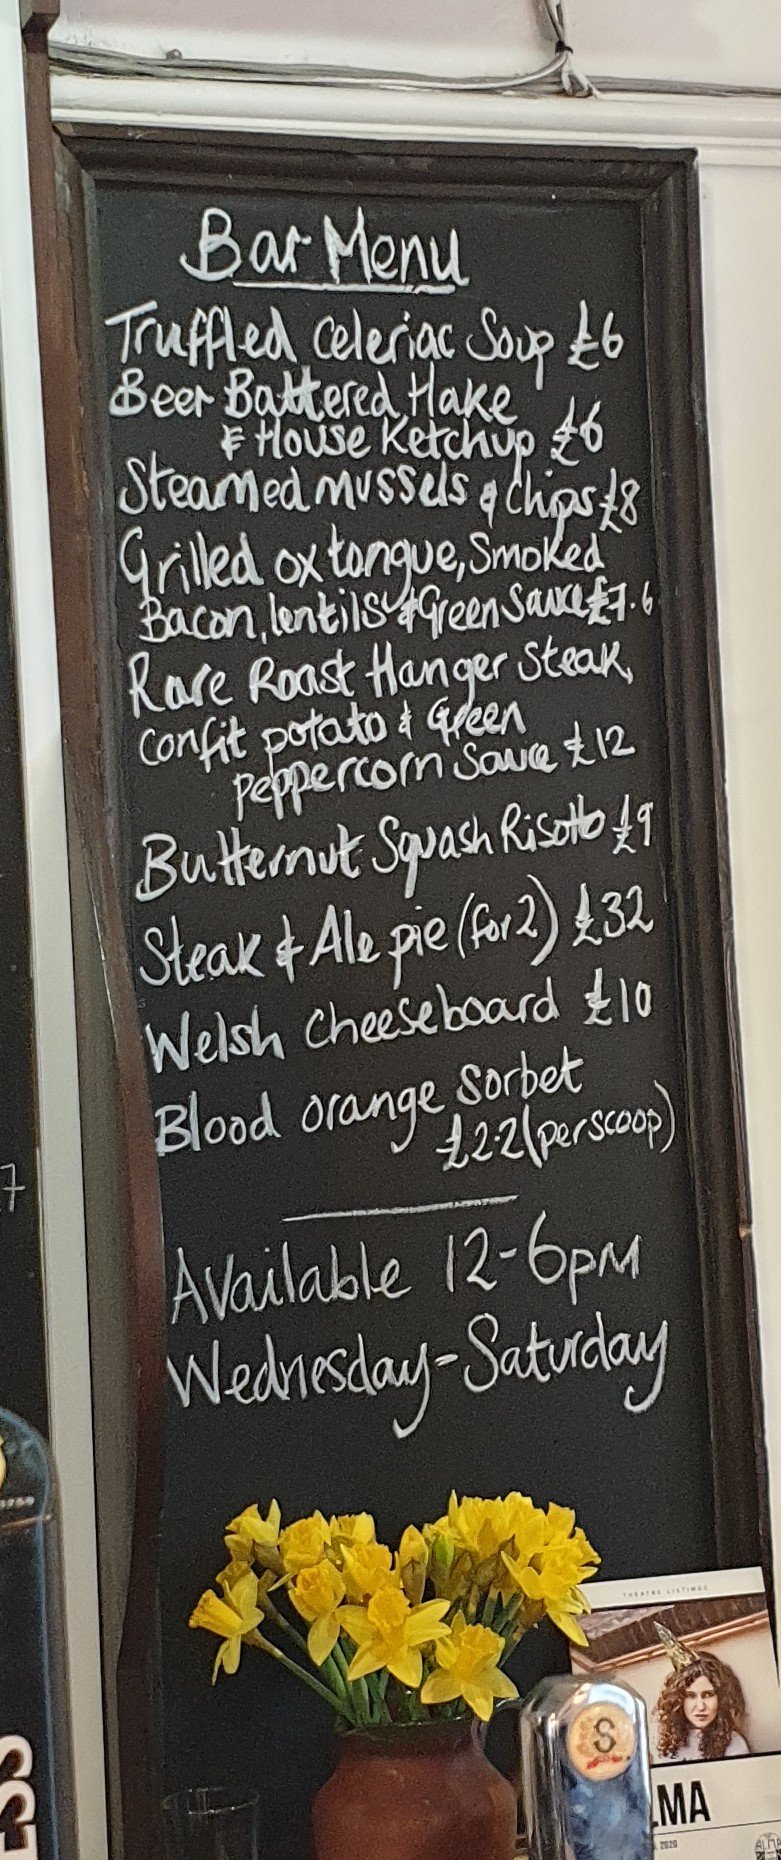 Bar Menu
Truffled Celeriac Soup £6
Beer Battered Hake
& House Ketchup £6
Steamed mussels & Chips £8
Grilled ox tongue, Smoked
Bacon, lentils & Green Sauce £7.6
Rare Roast Hanger Steak,
Confit potato & Green
Peppercorn Sauce £12
Butternut Squash Risotto £9
Steak & Ale pie (for 2) £32
Welsh Cheeseboard £10
Blood orange Sorbet
£2.2 (per scoop)
Available 12-6pm
Wednesday-Saturday
7
THEATRE LISTINGS
S
LMA
2020
SS